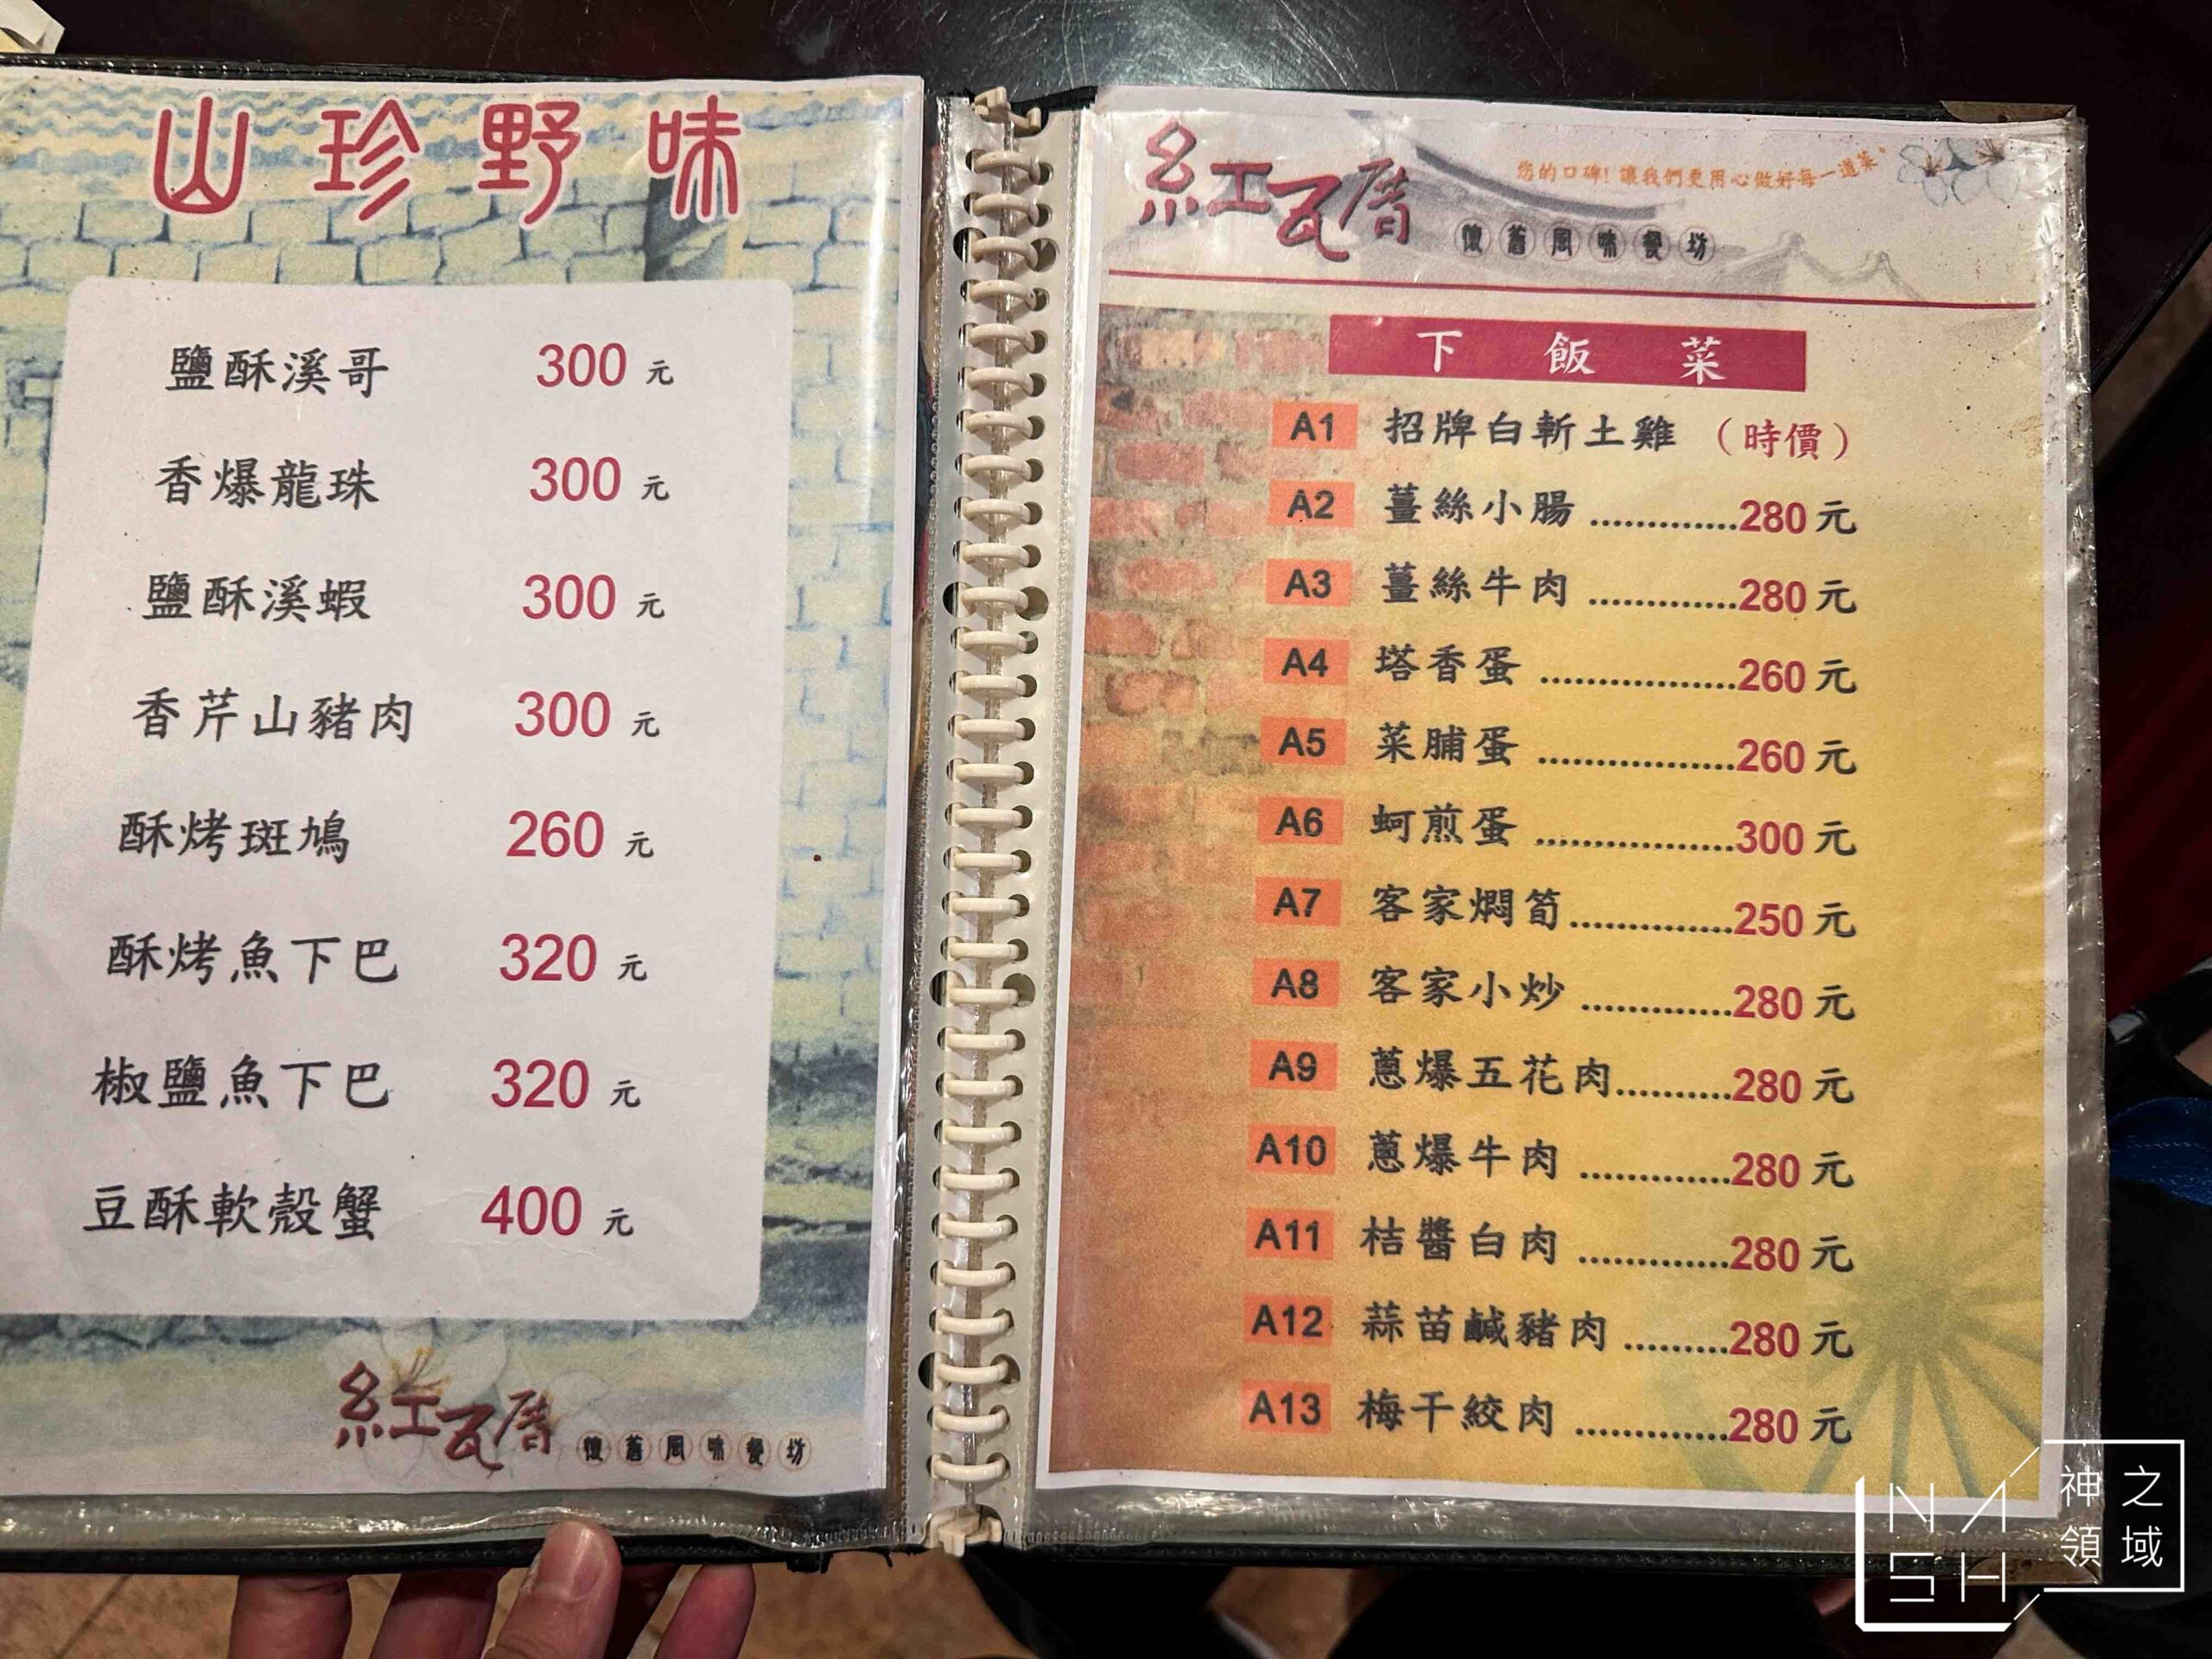 山珍野味
鹽酥溪哥 300 元
香爆龍珠 300 元
鹽酥溪蝦 300 元
香芹山豬肉 300 元
酥烤斑鳩 260 元
酥烤魚下巴 320 元
椒鹽魚下巴 320 元
豆酥軟殼蟹 400 元
紅瓦厝 懷舊風味餐坊
紅瓦厝 懷舊風味餐坊
您的口碑!讓我們更用心做好每一道菜。
下飯菜
A1 招牌白斬土雞 (時價)
A2 薑絲小腸 .............280 元
A3 薑絲牛肉 .............280 元
A4 塔香蛋 .................260 元
A5 菜脯蛋 .................260 元
A6 蚵煎蛋 .................300 元
A7 客家燜筍..............250 元
A8 客家小炒 .............280 元
A9 蔥爆五花肉..........280 元
A10 蔥爆牛肉 .............280 元
A11 桔醬白肉 .............280 元
A12 蒜苗鹹豬肉 .........280 元
A13 梅干絞肉 .............280 元
NASH
神之領域